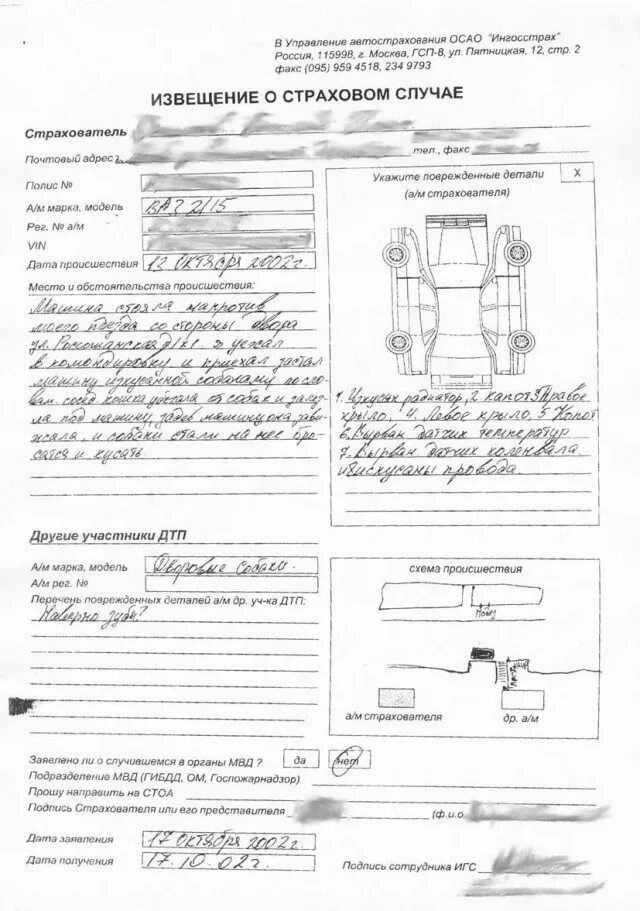 В Управление автострахования ОСАО "Ингосстрах"
Россия, 115998, г. Москва, ГСП-8, ул. Пятницкая, 12, стр. 2
факс (095) 959 4518, 234 9793
ИЗВЕЩЕНИЕ О СТРАХОВОМ СЛУЧАЕ
Страхователь
Почтовый адрес
тел., факс
Полис №
А/м марка, модель ВАЗ 2115
Рег. № а/м
VIN
Дата происшествия 13 октября 2002г.
Место и обстоятельства происшествия:
Машина стояла напротив
моего подъезда со стороны двора
ул. Россошанская д1к1 я уезжал
в командировку и приехал застал
машину искусанной собаками по сло-
вам. сосед кошка убегала от собак и залез-
ла под машину, задев машину она завиз-
жала, и собаки стали на нее бро-
сатся и кусать.
Укажите поврежденные детали
(а/м страхователя)
X
1. Искусан радиатор, 2. капот 3 Правое
крыло. 4. Левое крыло. 5 Капот
6. Вырван датчик температур
7. Вырван датчик коленвала
и искусаны провода.
Другие участники ДТП
А/м марка, модель Дворовые собаки.
А/м рег. №
Перечень поврежденных деталей а/м др. уч-ка ДТП:
Наверно зубы?
схема происшествия
а/м страхователя
др. а/м
Заявлено ли о случившемся в органы МВД ? да нет
Подразделение МВД (ГИБДД, ОМ, Госпожарнадзор)
Прошу направить на СТОА
Подпись Страхователя или его представителя
(ф.и.о
Дата заявления 17 октября 2002г.
Дата получения 17.10.02г.
Подпись сотрудника ИГС